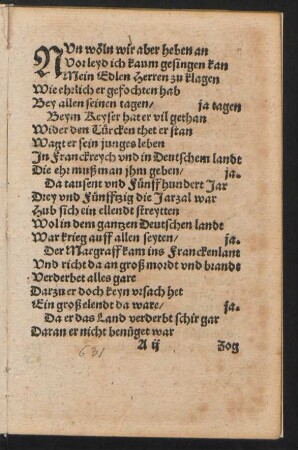 NUn wöln wir aber heben an
Vor leyd ich kaum gesingen kan
Mein Edlen Herren zu klagen
Wie ehrlich er gefochten hab
Bey allen seinen tagen/ ja tagen
Beym Keyser hat er vil gethan
Wider den Türcken thet er stan
Wagt er sein junges leben
In Franckreych vnd in Deutschem landt
Die eht muß man jhm geben/ ja.
Da tausent vnd Fünffhundert Jar
Drey vnd Fünfftzig die Jarzal war
Hub sich ein ellendt streytten
Wol in dem gantzen Deutschen landt
War krieg auff allen seyten/ ja.
Der Margraff kam ins Franckenlant
Vnd richt da an groß mordt vnd brandt
Verderbet alles gare
Darzu er doch keyn vrsach het
Ein groß elendt da ware/ ja.
Da er das Land verderbt schir gar
Daran er nicht benüget war
A ij Zog
631